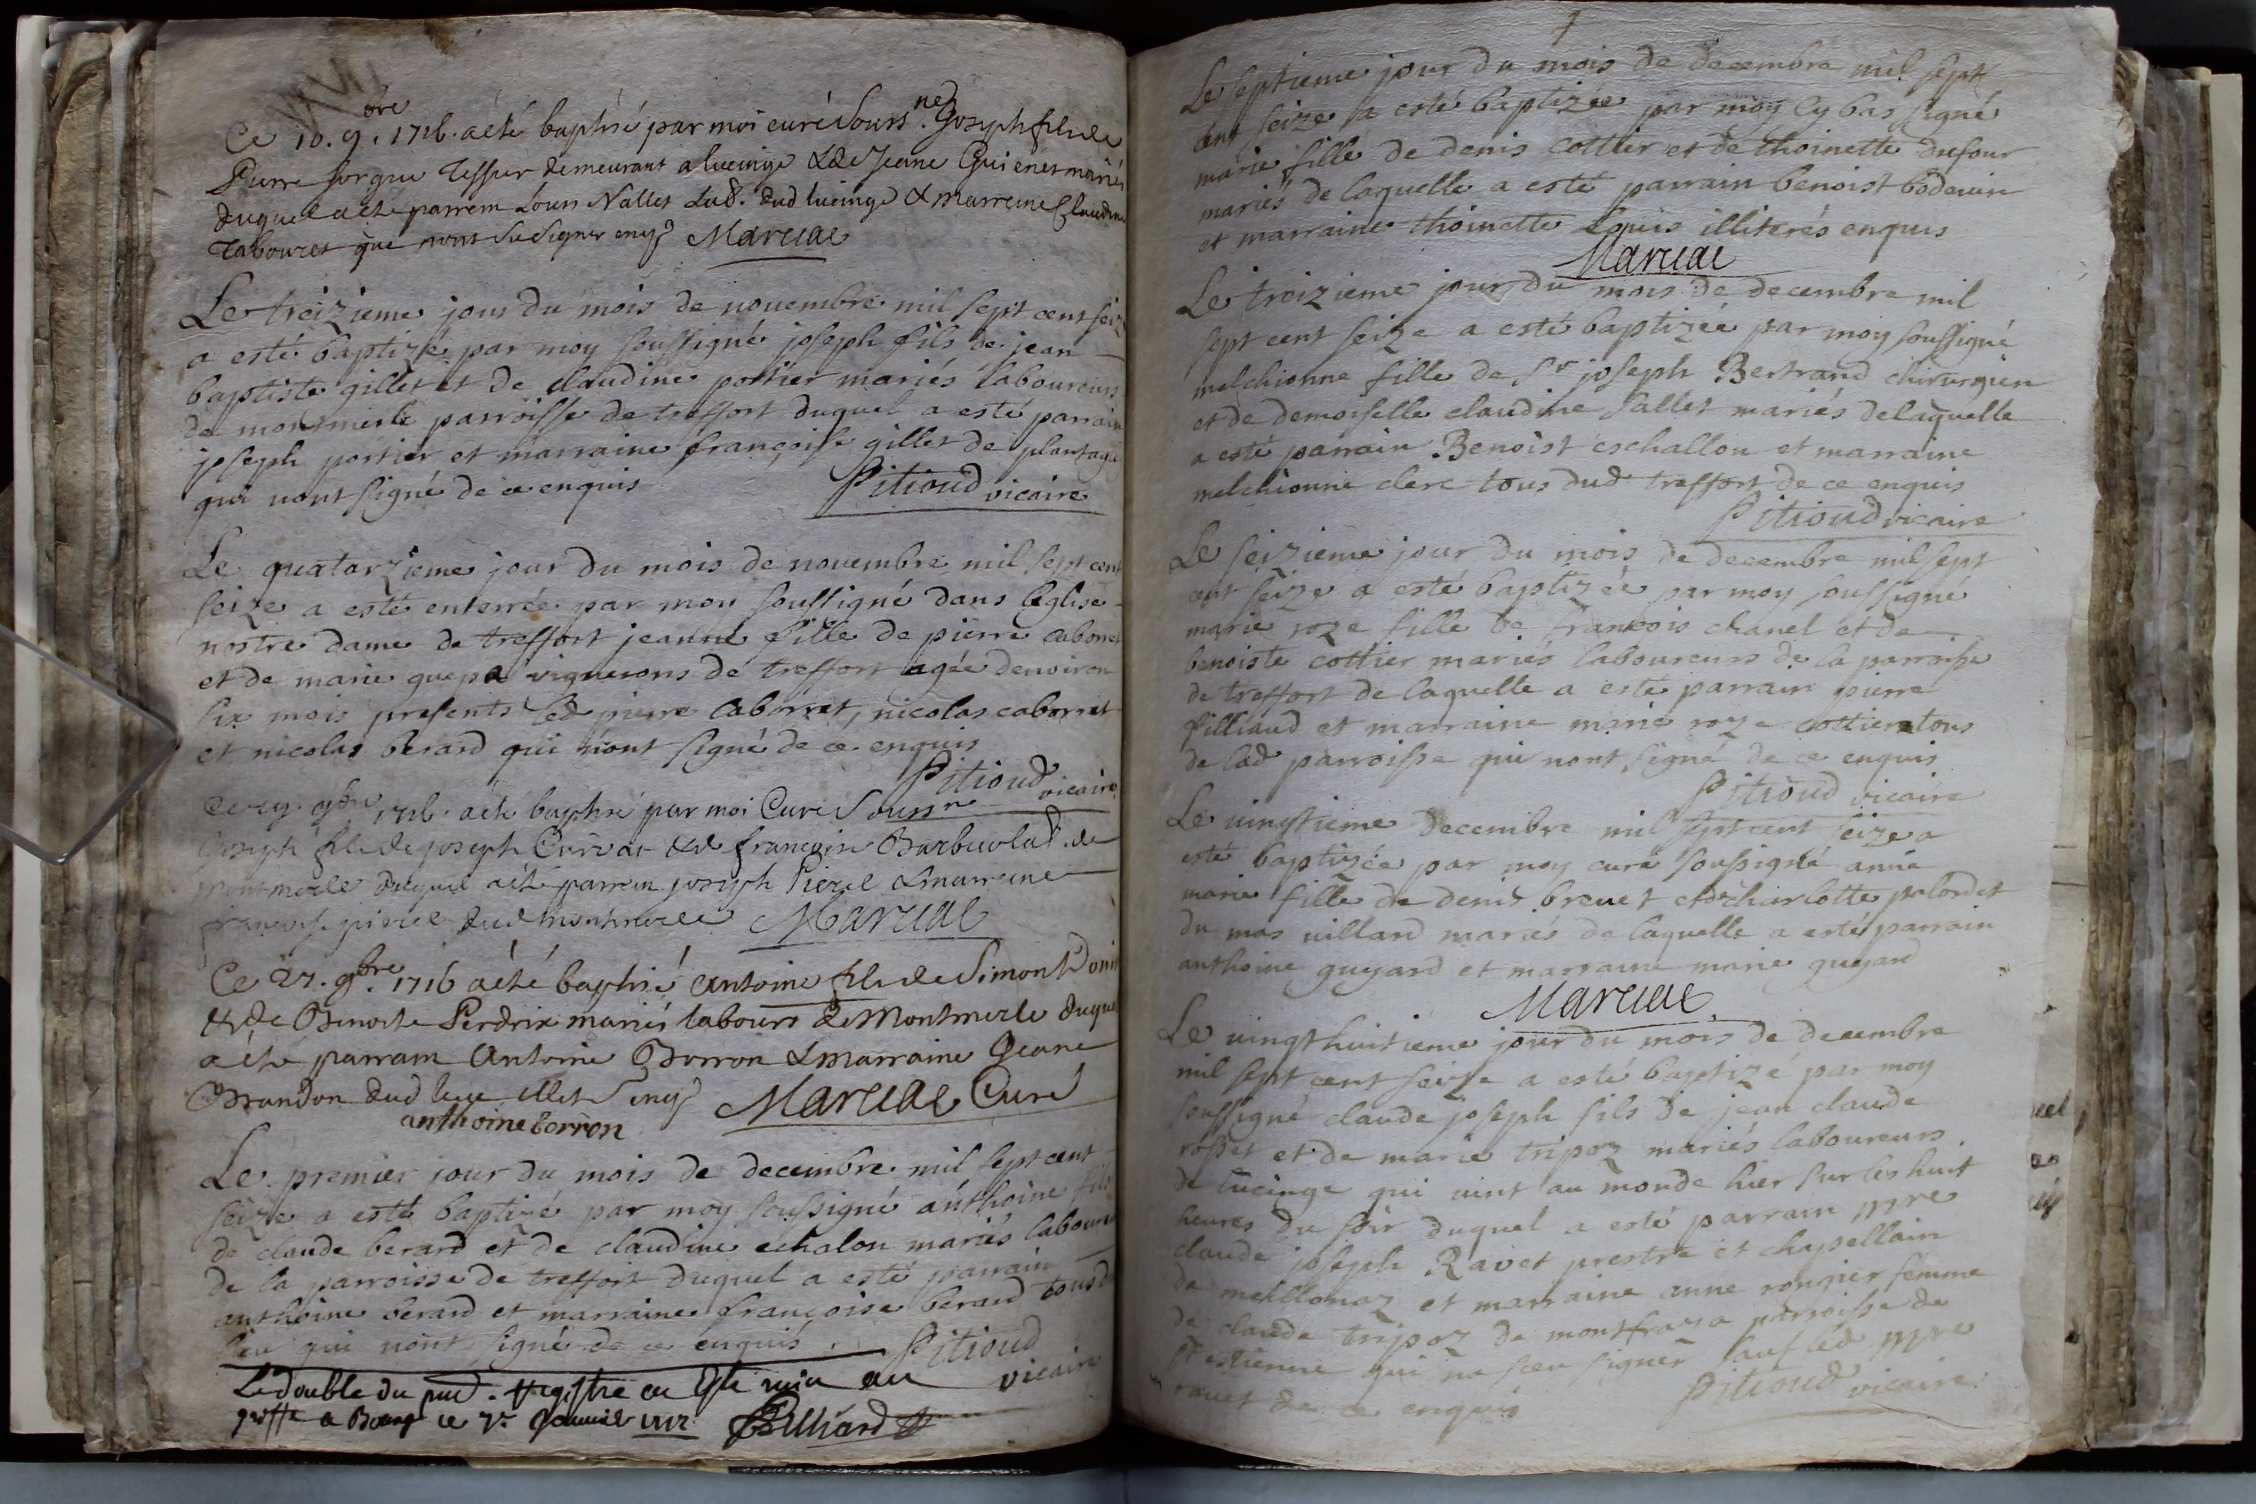 Ce 10. 9.bre 1716. a été baptisé par moi curé souss.né Joseph fils de
Pierre forgue Tessier demeurant a lucinge & de Jeane mariés
duquel a été parrein Louis Nallet Lab. dud lucinge & marreine Claudine
Tabouret que nont su signer enq. Marcial
Le treizieme jour du mois de novembre mil sept cent seiz
a esté baptizé par moy soussigné joseph fils de jean
baptiste gillet et de claudine portier mariés laboureurs
de montmerle parroisse de treffort duquel a esté parrain
joseph portier et marraine françoise gillet de plantage
qui nont signé de ce enquis Pitioud vicaire
Le quatorzieme jour du mois de novembre mil sept cent
seize a esté enterrée par moy soussigné dans leglise
nostre dame de treffort jeanne fille de pierre caborret
et de marie guepe vignerons de treffort agée denviron
six mois presents led pierre caborret, nicolas caborret
et nicolas berard qui nont signé de ce enquis
Pitioud vicaire
9bre 1716. a été baptisé par moi Curé Souss.né
Joseph fils de joseph & de françoise de
montmerle duquel a été parrein joseph Pierel & marreine
françoise dud montmerle Marcial
Ce 27. 9.bre 1716 a été baptisé Antoine fils de Simont
& de Benoite Perdrix mariés labours de Montmerle duquel
a été parrain Antoine Borron & marraine Jeane
Brandon dud lieu illet enq. Marcial Curé
anthoine borron
Le premier jour du mois de decembre mil sept cent
seize a esté baptizé par moy soussigné anthoine fils
de claude berard et de claudine échalon mariés labour
de la parroisse de treffort duquel a esté parrain
anthoine berard et marraine françoise berard tous d
lieu qui nont signé de ce enquis. Pitioud
vicaire
Le double du registre a esté mis au
greffe a Bourg le 7e Janvier 1717 Billiard
Le septieme jour du mois de decembre mil sept
cent seize a esté baptizée par moy cy bas signé
marie fille de denis cottier et de thoinette dufour
mariés de laquelle a esté parrain benoist boderin
et marraine thoinette Louis illiterés enquis
Marcial
Le treizieme jour du mois de decembre mil
sept cent seize a esté baptizée par moy soussigné
melchionne fille de Sr joseph Bertrand chirurgien
et de demoiselle claudine Sallet mariés de laquelle
a esté parrain Benoist eschallon et marraine
melchionne clerc tous dud treffort de ce enquis
Pitioud vicaire
Le seizieme jour du mois de decembre mil sept
cent seize a esté baptizée par moy soussigné
marie roze fille de françois chanel et de
benoiste cottier mariés laboureurs de la parroisse
de treffort de laquelle a esté parrain pierre
filliaud et marraine marie roze cottier tous
de lad parroisse qui nont signé de ce enquis
Pitioud vicaire
Le vingtieme decembre mil sept cent seize a
esté baptizée par moy curé soussigné anne
marie fille de denis brevet et de charlotte palordet
du mas villard mariés de laquelle a esté parrain
anthoine guyard et marraine marie guyard
Marcial
Le vingthuitieme jour du mois de decembre
mil sept cent seize a esté baptizé par moy
soussigné claude joseph fils de jean claude
rosset et de marie tripoz mariés laboureurs
de lucinge qui vint au monde hier sur les huit
heures du soir duquel a esté parrain mre
claude joseph Ravet prestre et chapellain
de meillonaz et marraine anne rongier femme
de claude tripoz de montfraza parroisse de
st estienne qui na sceu signer sauf led mre
ravet de ce enquis Pitioud vicaire